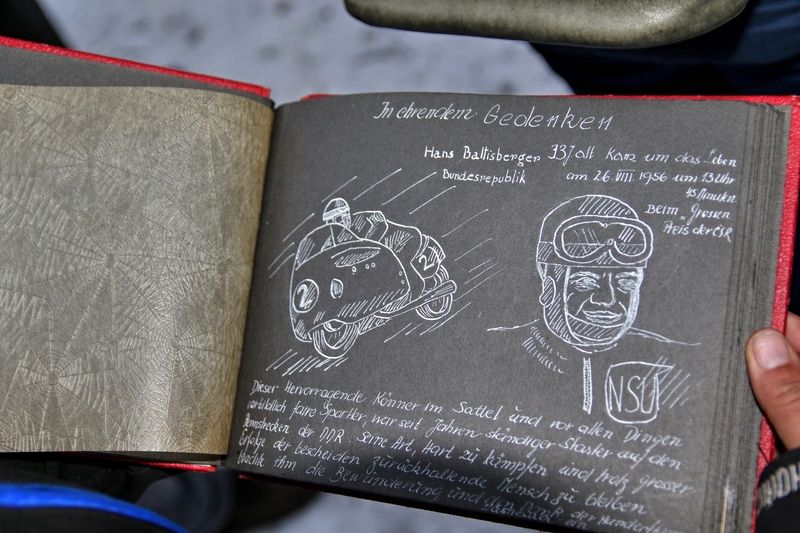 In ehrendem Gedenken
Hans Baltisberger 33J alt Kam um das Leben
Bundesrepublik am 26. VIII 1956 um 13 Uhr
45 Minuten
Beim „Grossen
Preis der ČSR
2
2
NSU
Dieser Hervorragende Könner im Sattel und vor allen Dingen
vorbildlich faire Sportler, war seit Jahren ständiger Starter auf den
Rennstrecken der DDR. Seine Art, Hart zu kämpfen und trotz grosser
Erfolge der bescheiden zurückhaltende Mensch zu bleiben
brachte ihm die Bewunderung und der